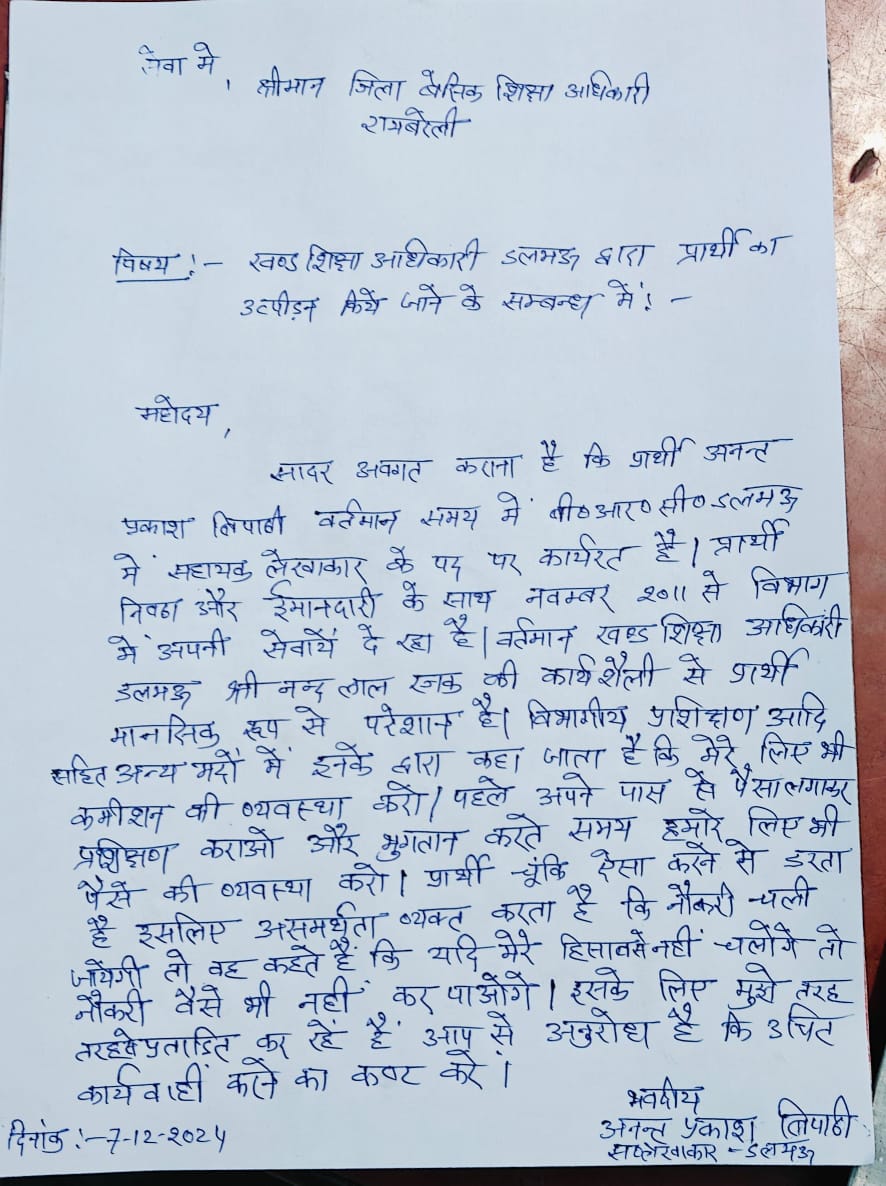 सेवा में,
श्रीमान जिला बेसिक शिक्षा अधिकारी
रायबरेली
विषय :- खण्ड शिक्षा अधिकारी डलमऊ द्वारा प्रार्थी का
उत्पीड़न किये जाने के सम्बन्ध में :-
महोदय,
सादर अवगत कराना है कि प्रार्थी अनन्त
प्रकाश त्रिपाठी वर्तमान समय में बी०आर०सी० डलमऊ
में सहायक लेखाकार के पद पर कार्यरत है। प्रार्थी
निष्ठा और ईमानदारी के साथ नवम्बर 2011 से विभाग
में अपनी सेवायें दे रहा है। वर्तमान खण्ड शिक्षा अधिकारी
डलमऊ श्री नन्द लाल रजक की कार्यशैली से प्रार्थी
मानसिक रूप से परेशान है। विभागीय प्रशिक्षण आदि
सहित अन्य मदों में इनके द्वारा कहा जाता है कि मेरे लिए भी
कमीशन की व्यवस्था करो। पहले अपने पास से पैसा लगाकर
प्रशिक्षण कराओ और भुगतान करते समय हमारे लिए भी
पैसे की व्यवस्था करो। प्रार्थी चूंकि ऐसा करने से डरता
है इसलिए असमर्थता व्यक्त करता है कि नौकरी चली
जायेगी तो वह कहते हैं कि यदि मेरे हिसाब से नहीं चलोगे तो
नौकरी वैसे भी नहीं कर पाओगे। इसके लिए मुझे तरह
तरह से प्रताड़ित कर रहें हैं आप से अनुरोध है कि उचित
कार्यवाहीं करने का कष्ट करें।
भवदीय
अनन्त प्रकाश त्रिपाठी
दिनांक :- 7-12-2024
स०लेखाकार - डलमऊ